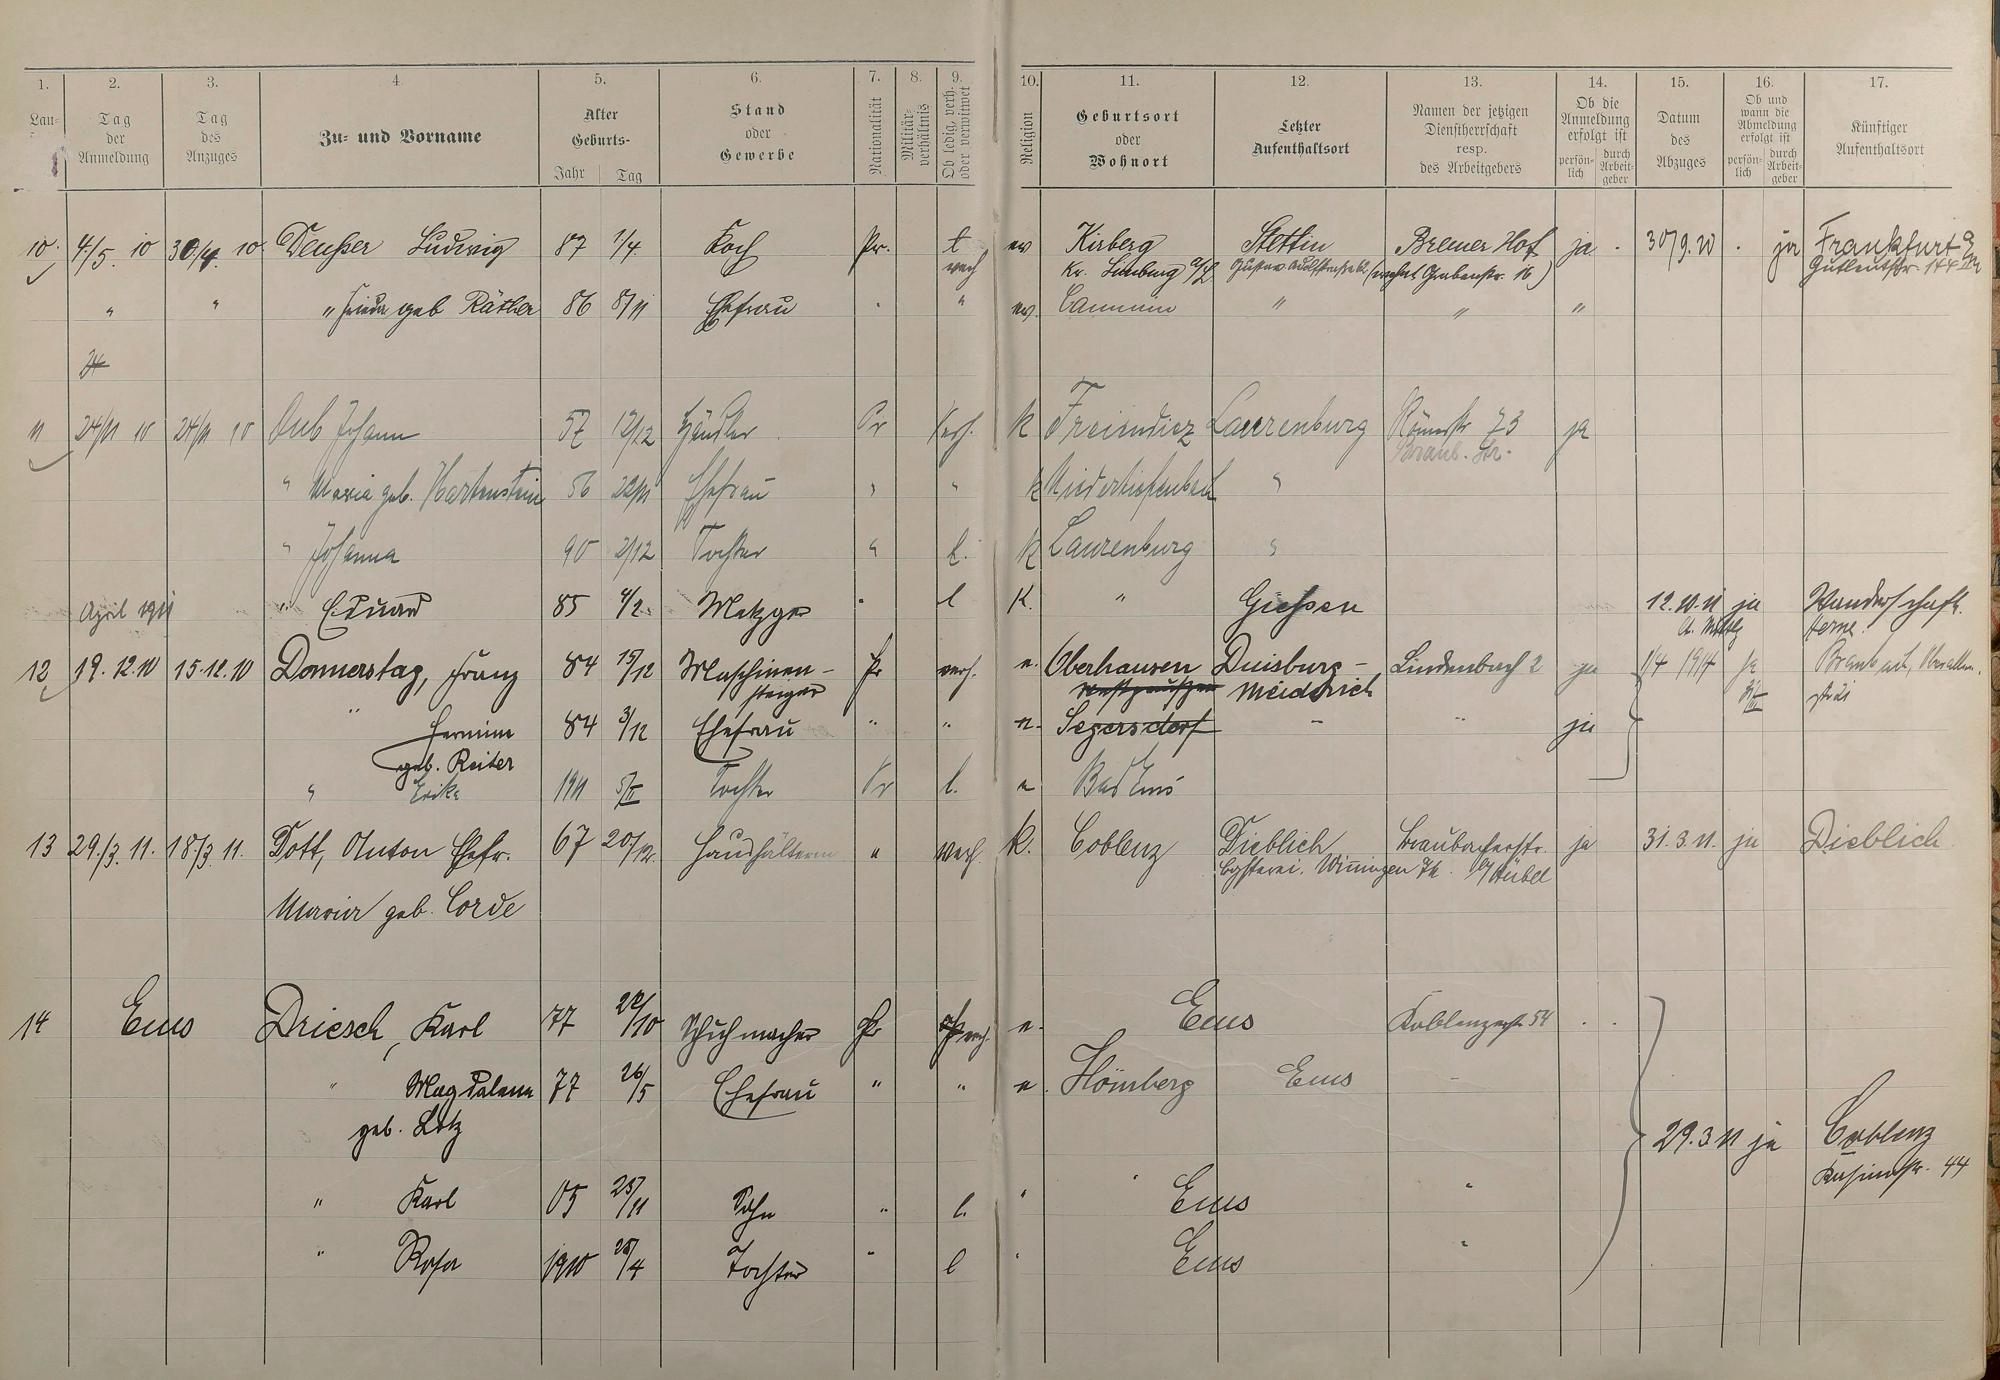 1. 2. 3. 4. 5. 6. 7. 8. 9. 10. 11. 12. 13. 14. 15. 16. 17.
Lau-
Tag der Anmeldung
Tag des Anzuges
Zu- und Vorname
Alter
Geburts-
Jahr Tag
Stand oder Gewerbe
Nationalität
Militär-verhältnis
Ob ledig, verh. oder verwitwet
Religion
Geburtsort oder Wohnort
Letzter Aufenthaltsort
Namen der jetzigen Dienstherrschaft resp. des Arbeitgebers
Ob die Anmeldung erfolgt ist
persön-lich durch Arbeit-geber
Datum des Abzuges
Ob und wann die Abmeldung erfolgt ist
persön-lich durch Arbeit-geber
Künftiger Aufenthaltsort
10. 4./5. 10 30/4. 10 Deußer Ludwig 87 1/4. Koch Pr. ev Kirberg Stettin Bremer Hof ja 30/9.10 ja Frankfurt
verh Kr. Limburg a/L. Grabenstr. 16) Gutleutstr. 144
" " " Frieda geb Räther 86 8/11 Ehefrau " " ev. Cammin " " "
24
11 24/11 10 24/11 10 Johann 57 12/12 Händler Pr Verh. k Freiendiez Laurenburg Römerstr 73 ja
Braub. Str.
" Maria geb. Hartenstein 56 22/11 Ehefrau " " k Niedertiefenbach "
" Johanna 90 2/12 Tochter " l. k Laurenburg "
April 1911 " Eduard 85 4/2. Metzger " l K. " Giessen 12.10.11 ja Wanderschaft.
12 19.12.10 15.12.10 Donnerstag, Franz 84 15/12 Maschinen- Pr verh. e. Oberhausen Duisburg- Lindenbach 2 ja 1/4 1914 ja
steiger Meidrich
" Hermine 84 3/12 Ehefrau " " e. Segersdorf - " ja
geb. Reiter
" Erika 1911 5/II Tochter Pr l. e Bad Ems
13 29./3. 11. 18./3 11. Dott, Anton Ehefr. 67 20/12. Haushälterin " verh. k. Coblenz Dieblich Braubacherstr. ja 31.3.11. ja Dieblich
Winningen
Maria geb. Corde
14 Ems Driesch, Karl 77 22/10 Schuhmacher Pr verh. e. Ems Koblenzerstr 54
" Magdalena 77 26/5 Ehefrau " " e. Hömberg Ems -
geb. Lotz
29.3 11 ja Coblenz
44
" Karl 05 25/11 Sohn " l. " " Ems "
" Rosa 1910 25/4 Tochter " l " Ems "